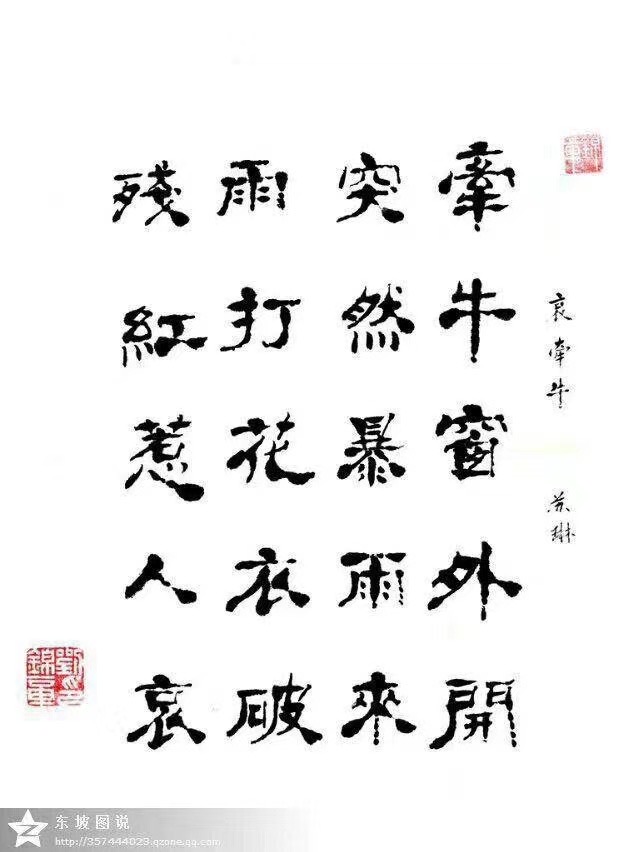 哀牽牛
苏琳
牽牛窗外開
突然暴雨來
雨打花衣破
殘紅惹人哀
劉錦軍印
东坡图说
http://357444023.qzone.qq.com